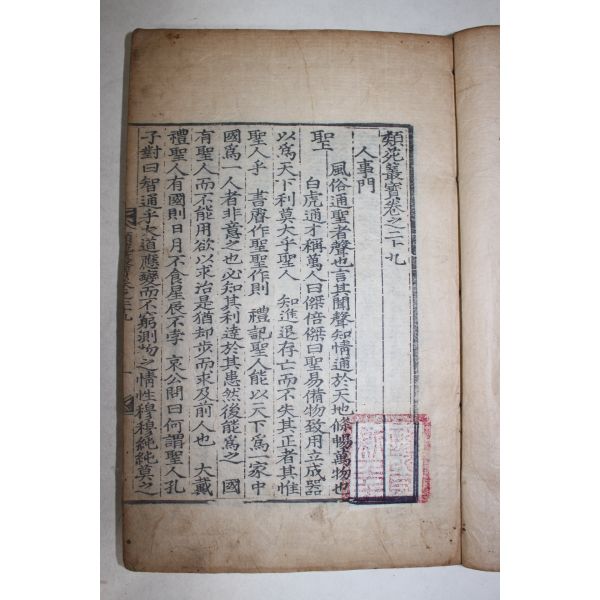 類苑叢寶卷之二十九
人事門
聖 風俗通聖者聲也言其聞聲知情通於天地條暢萬物也
白虎通才稱萬人曰傑倍傑曰聖易備物致用立成器
以爲天下利莫大乎聖人 知進退存亡而不失其正者其惟
聖人乎 書睿作聖聖作則 禮記聖人能以天下爲一家中
國爲一人者非意之也必知其利達於其患然後能爲之 國
有聖人而不能用欲以求治是猶却步而求及前人也 大戴
禮聖人有國則日月不食星辰不孛 哀公問曰何謂聖人孔
子對曰智通乎大道應變而不窮測物之情性穆穆純純莫之